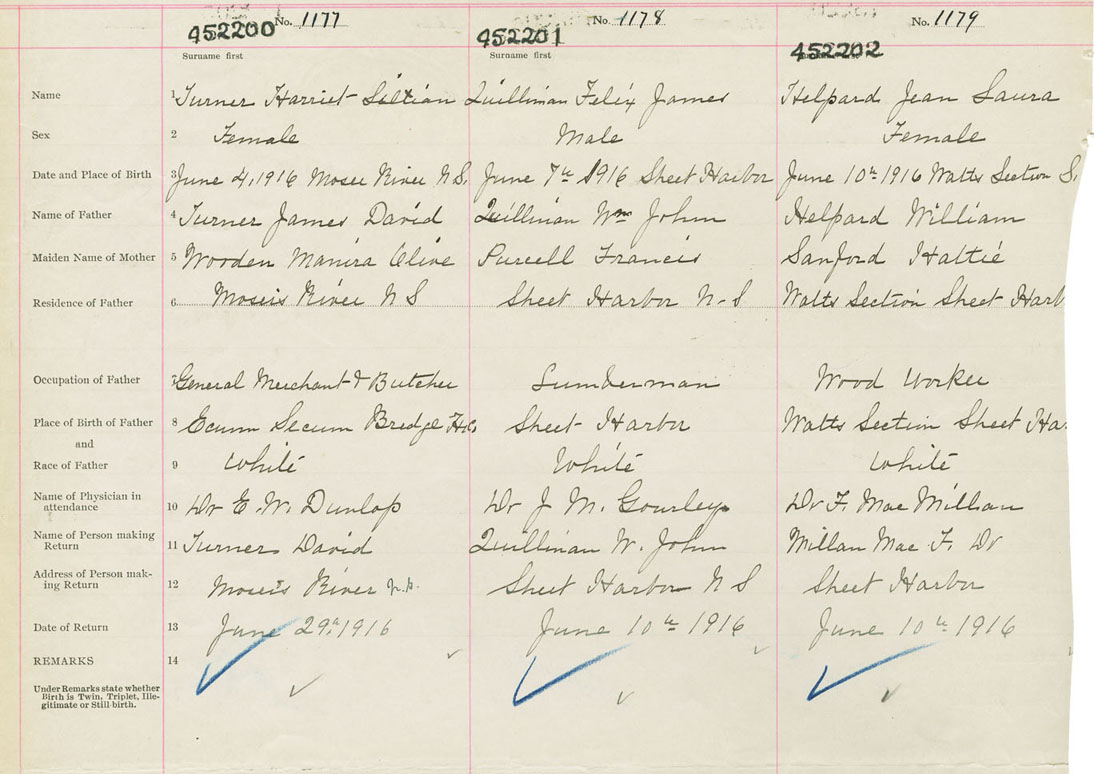 No. 1177 No. 1178 No. 1179
452200 452201 452202
Surname first Surname first Surname first
Name 1 Turner Harriet Lillian Quillinan Felix James Helpard Jean Laura
Sex 2 Female Male Female
Date and Place of Birth 3 June 4, 1916 Moser River N.S. June 7th 1916 Sheet Harbor June 10th 1916 Watts Section S.
Name of Father 4 Turner James David Quillinan Wm John Helpard William
Maiden Name of Mother 5 Wooden Olive Purcell Francis Sanford Hattie
Residence of Father 6 Moseis River N S Sheet Harbor N-S Watts Section Sheet Harb
Occupation of Father 7 General Merchant & Butcher Lumberman Wood Worker
Place of Birth of Father 8 Ecum Secum Bridge Sheet Harbor Watts Section Sheet Har
and
Race of Father 9 White White White
Name of Physician in
attendance 10 Dr E. W. Dunlop Dr J M. Gourley Dr F. Mac Millan
Name of Person making
Return 11 Turner David Quillinan W. John Millan Mac F. Dr
Address of Person mak-
ing Return 12 Moseis River n.s. Sheet Harbor N S Sheet Harbor
Date of Return 13 June 29th 1916 June 10th 1916 June 10th 1916
REMARKS 14
Under Remarks state whether
Birth is Twin, Triplet, Ille-
gitimate or Still-birth.